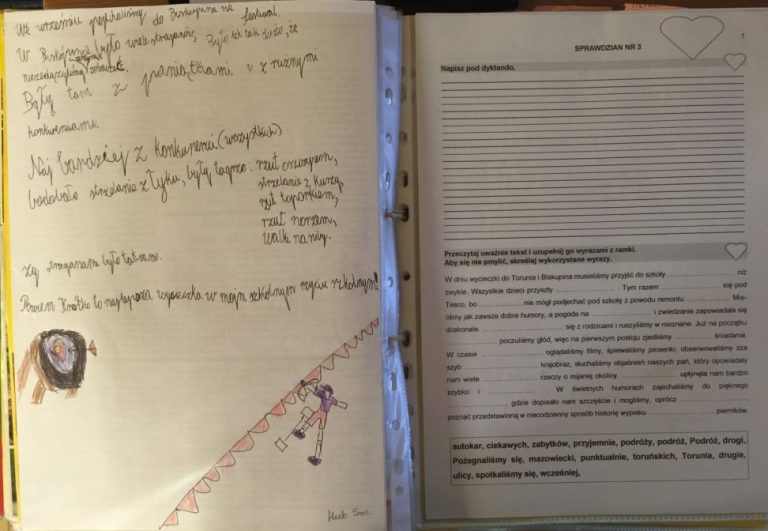 We wrześniu pojechaliśmy do Biskupina na festiwal.
W Biskupinie było wiele straganów, Było ich tak dużo, że
Były tam z pamiątkami i z rużnymi
konkurencjami.
Naj bardziej z konkurencji (wszystkich)
strzelanie z łyku, były
rzut oszczepem,
strzelanie z kuszy,
rzut toporkiem,
rzut norzem,
walki na niby.
straganami było
to najlepsza wycieczka w moim szkolnym rzyciu szkolnym!
Hub Sos.
1
SPRAWDZIAN NR 3
Napisz pod dyktando.
Przeczytaj uważnie tekst i uzupełnij go wyrazami z ramki.
Aby się nie pmylić, skreślaj wykorzystane wyrazy.
W dniu wycieczki do Torunia i Biskupina musieliśmy przyjść do szkoły ........................ niż
zwykle. Wszystkie dzieci przyszły ........................ Tym razem ........................ się pod
Tesco, bo ........................ nie mógł podjechać pod szkołę z powodu remontu ........................ Mie-
liśmy jak zawsze dobre humory, a pogoda na ........................ i zwiedzanie zapowiadała się
doskonale. ........................ się z rodzicami i ruszyliśmy w nieznane. Już na początku
........................ poczuliśmy głód, więc na pierwszym postoju zjedliśmy ........................ śniadania.
W czasie ........................ oglądaliśmy filmy, śpiewaliśmy piosenki, obserwowaliśmy zza
szyb ........................ krajobraz, słuchaliśmy objaśnień naszych pań, który opowiadały
nam wiele ........................ rzeczy o mijanej okolicy. ........................ upłynęła nam bardzo
szybko i ........................ . W świetnych humorach zajechaliśmy do pięknego
........................, gdzie dopisało nam szczęście i mogliśmy, oprócz ........................
poznać przedstawioną w niecodzienny sposób historię wypisku ........................ pierników.
autokar, ciekawych, zabytków, przyjemnie, podróży, podróż, Podróż, drogi,
Pożegnaliśmy się, mazowiecki, punktualnie, toruńskich, Torunia, drugie,
ulicy, spotkaliśmy się, wcześniej,